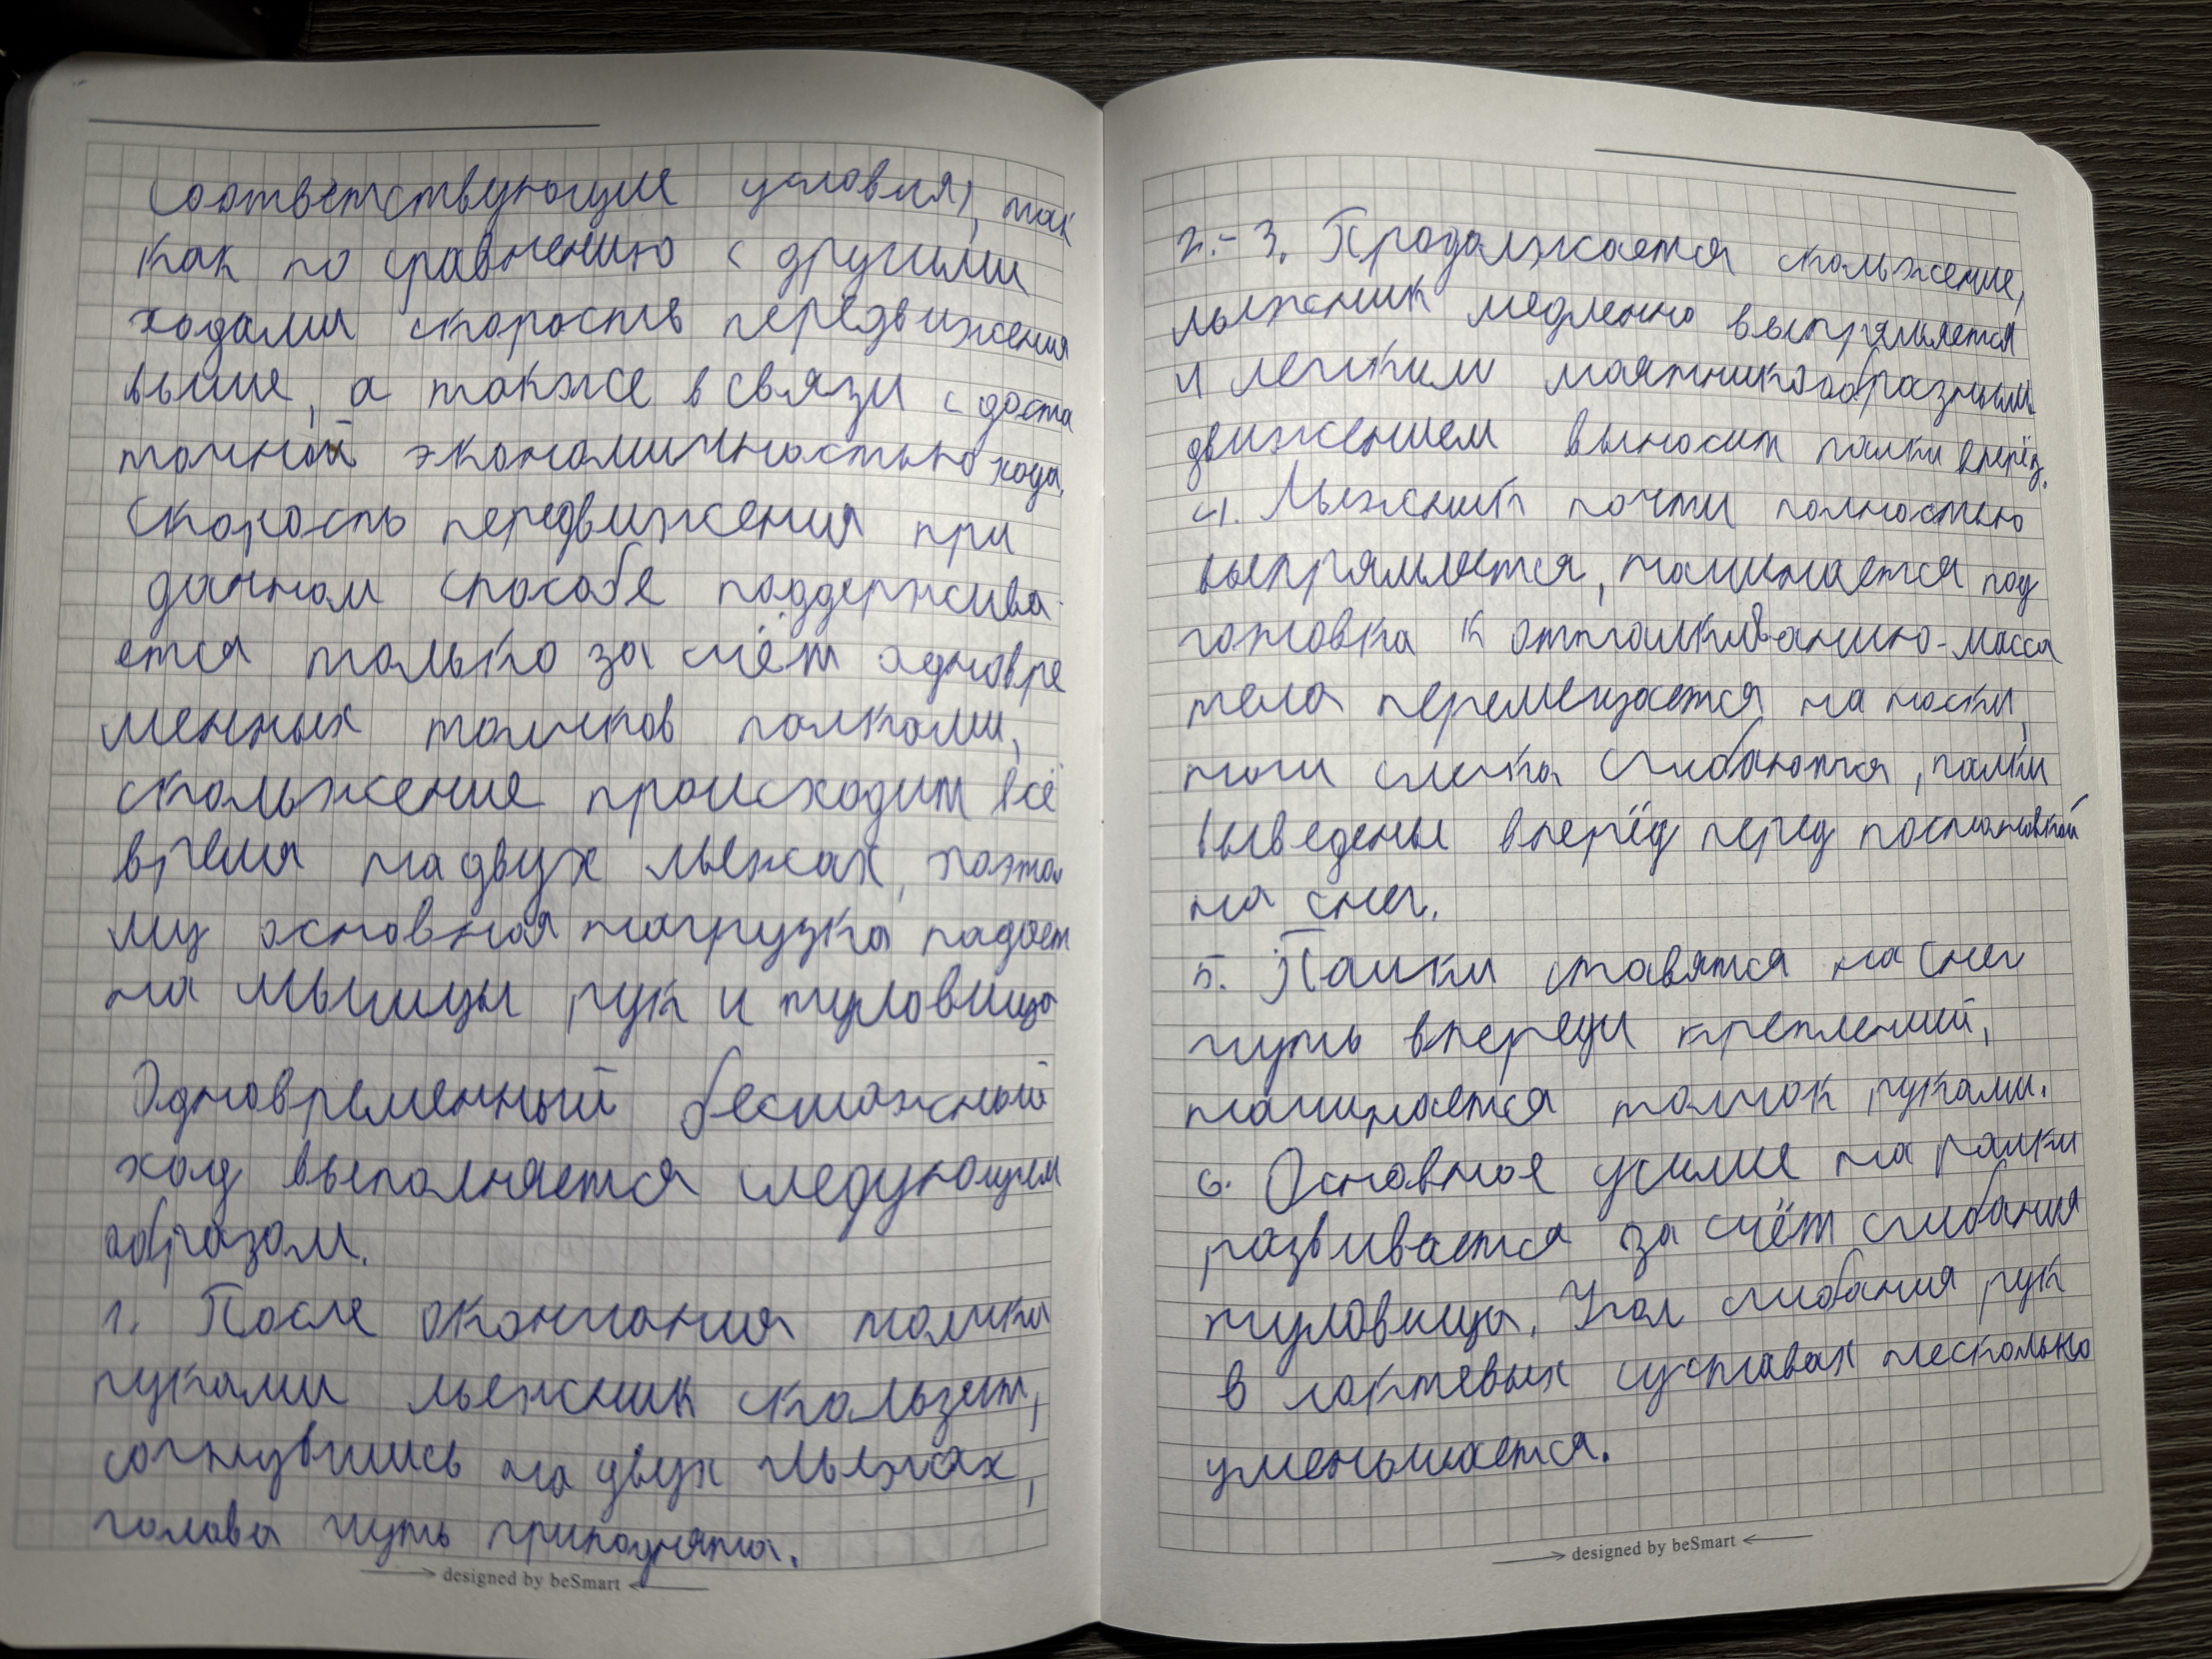 соответствующие условия), так
как по сравнению с другими
ходами скорость передвижения
выше, а также в связи с доста
точной экономичностью хода.
Скорость передвижения при
данном способе поддержива-
ется только за счёт одновре
менных толчков палками,
скольжение происходит всё
время на двух лыжах, поэто
му основная нагрузка падает
на мышцы рук и туловища
Одновременный бесшажный
ход выполняется следующем
образом.
1. После окончания толчка
руками лыжник скользит,
согнувшись на двух лыжах,
голова чуть приподнята.
designed by beSmart
2.-3. Продолжается скольжение,
лыжник медленно выпрямляется
и легким маятникообразным
движением выносит палки вперёд.
4. Лыжник почти полностью
выпрямляется, начинается под
готовка к отталкиванию - масса
тела перемещается на носки,
ноги слегка сгибаются, палки
выведены вперёд перед постановкой
на снег.
5. Палки ставятся на снег
чуть впереди креплений,
начинается толчок руками.
6. Основное усилие на палки
развивается за счёт сгибания
туловища. Угол сгибания рук
в локтевых суставах несколько
уменьшается.
designed by beSmart